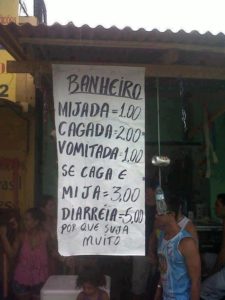 BANHEIRO
MIJADA=1.00
CAGADA=2.00
VOMITADA=1.00
SE CAGA E
MIJA=3,00
DIARRÉIA=5,00
POR QUE SUJA
MUITO